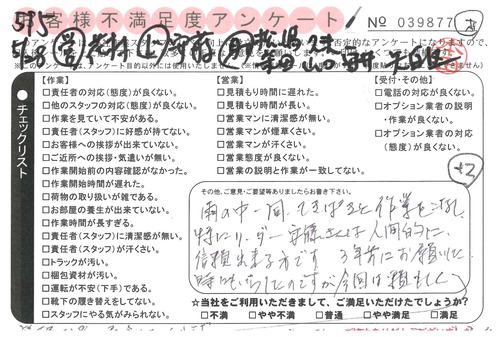 お客様不満足度アンケート
No 039877
チェックリスト
【作業】
□責任者の対応(態度)が良くない。
□他のスタッフの対応(態度)が良くない。
□作業を見ていて不安がある。
□責任者(スタッフ)に好感が持てない。
□お客様への挨拶が出来ていない。
□ご近所への挨拶・気遣いが無い。
□作業開始前の内容確認がなかった。
□作業開始時間が遅れた。
□荷物の取り扱いが雑である。
□お部屋の養生が出来ていない。
□作業時間が長すぎる。
□責任者(スタッフ)に清潔感が無い。
□責任者(スタッフ)が汗くさい。
□トラックが汚い。
□梱包資材が汚い。
□運転が不安(下手)である。
□靴下の履き替えをしてない。
□スタッフにやる気がみられない。
【営業】
□見積もり時間に遅れた。
□見積もり時間が長い。
□営業マンに清潔感が無い。
□営業マンが煙草くさい。
□営業マンが汗くさい。
□営業態度が良くない。
□営業の説明と作業が一致してない。
【受付・その他】
□電話の対応が良くない。
□オプション業者の説明
・作業が良くない。
□オプション業者の対応
(態度)が良くない。
その他、ご意見・ご要望等ありましたらお書き下さい。
雨の中一同、てきぱきと作業をこなし、
特にリーダー安藤さんは人間的に
信頼出来る方です 3年前にお願いした
時にも
今回は
☆当社をご利用いただきまして、ご満足いただけたでしょうか?
□不満 □やや不満 □普通 □やや満足 □満足